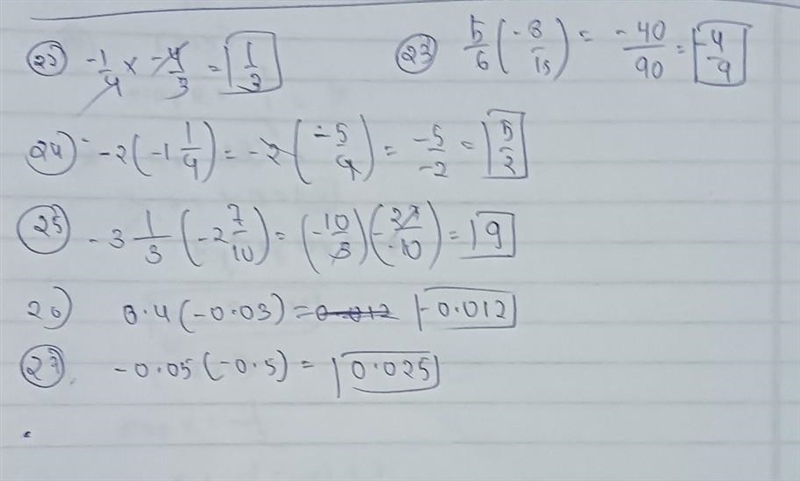 22) -1/4 × -4/3 = 1/3 (23) 5/6 (-8/15) = -40/90 = -4/9
24) -2(-1 1/4) = -2(-5/4) = -5/-2 = 5/2
25) -3 1/3 (-2 7/10) = (-10/3)(-27/10) = 9
26) 0.4(-0.03) = 0.012 -0.012
27) -0.05(-0.5) = 0.025